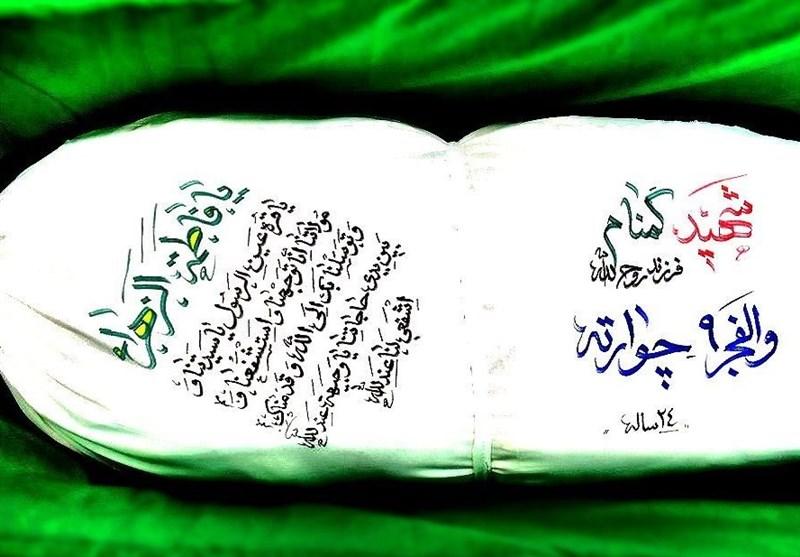 شهید گمنام
فرزند روح الله
والفجر ۹ چوارته
"۲۴ ساله"
یا فاطمة الزهراء
یا قرة عین الرسول یا سیدتنا و
مولاتنا انا توجهنا و استشفعنا و
توسلنا بک الی الله و قدمناک
بین یدی حاجاتنا یا وجیهة عند الله
اشفعی لنا عند الله